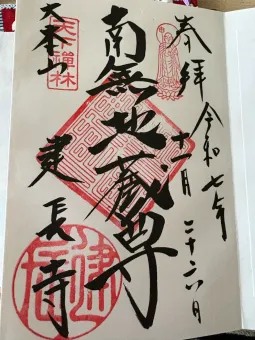 奉拝
令和七年
十一月二十六日
南無地蔵尊
天下禅林
大本山
建長寺
建長